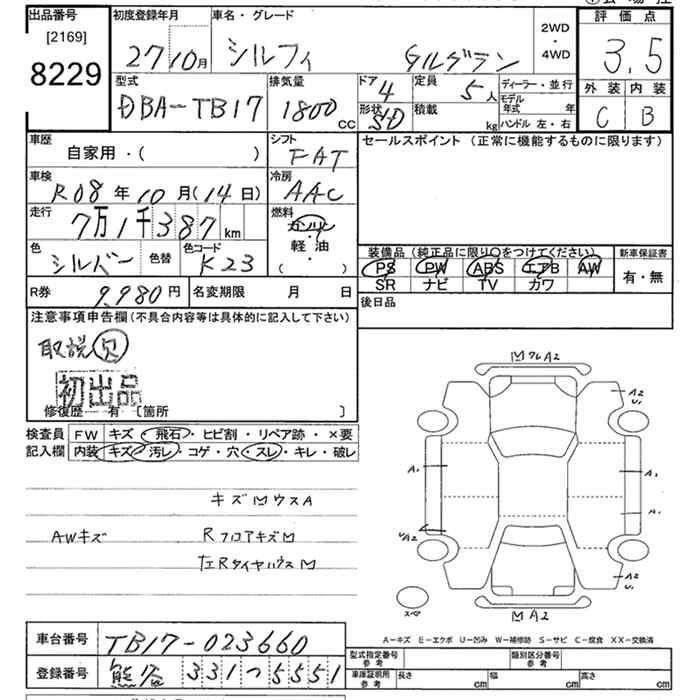 出品番号
[2169]
8229
初度登録年月
27 10月
車名・グレード
シルフィ
2WD
・
4WD
評価点
3.5
外装 内装
C B
型式
DBA-TB17
排気量
1800 CC
ドア 4
形状 SD
定員 5人
積載 kg
ディーラー・並行
モデル年式 年
ハンドル 左・右
車歴
自家用・( )
シフト
FAT
車検
R08年10月(14日)
冷房
AAC
走行
7万1千387km
燃料
ガソリン
・
軽油
・
( )
色
シルバー
色替
色コード
K23
セールスポイント(正常に機能するものに限ります)
装備品(純正品に限り○をつけてください)
PS PW ABS エアB AW
SR ナビ TV カワ
新車保証書
有・無
R券 9,980円
名変期限 月 日
後日品
注意事項申告欄(不具合内容等は具体的に記入して下さい)
取説 欠
初出品
修復歴 有 〔箇所 〕
検査員 FW キズ・飛石・ヒビ割・リペア跡・×要
記入欄 内装 キズ・汚レ・コゲ・穴・スレ・キレ・破レ
キズMウスA
AWキズ RフロアキズM
左RタイヤハウスM
A2
U1
A1
A1
A1
A2
A2
U1
スペア
MA2
A-キズ E-エクボ U-凹み W-補修跡 S-サビ C-腐食 XX-交換済
車台番号 TB17-023660
登録番号 熊谷 331つ5551
型式指定番号
参考
類別区分番号
参考
車庫証明用
参考
長さ cm 幅 cm 高さ cm